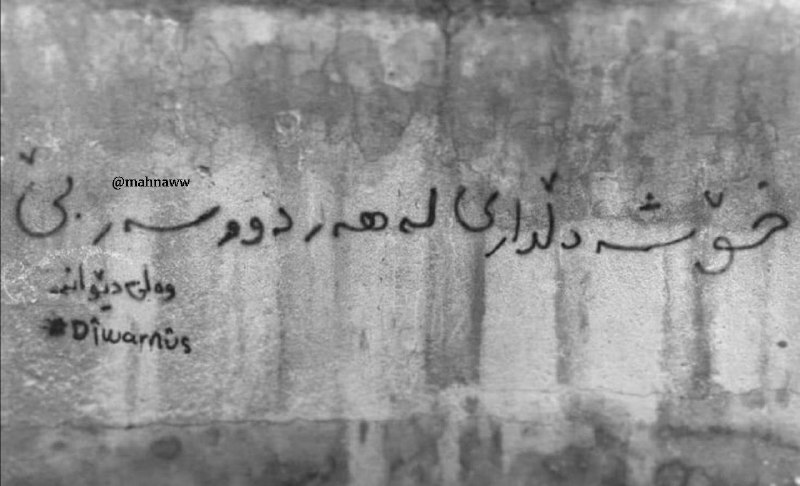 خۆشە دڵداری لە هەر دوو سەر بێ
@mahnaww
وەلی دێوانە
#Dîwarnûs